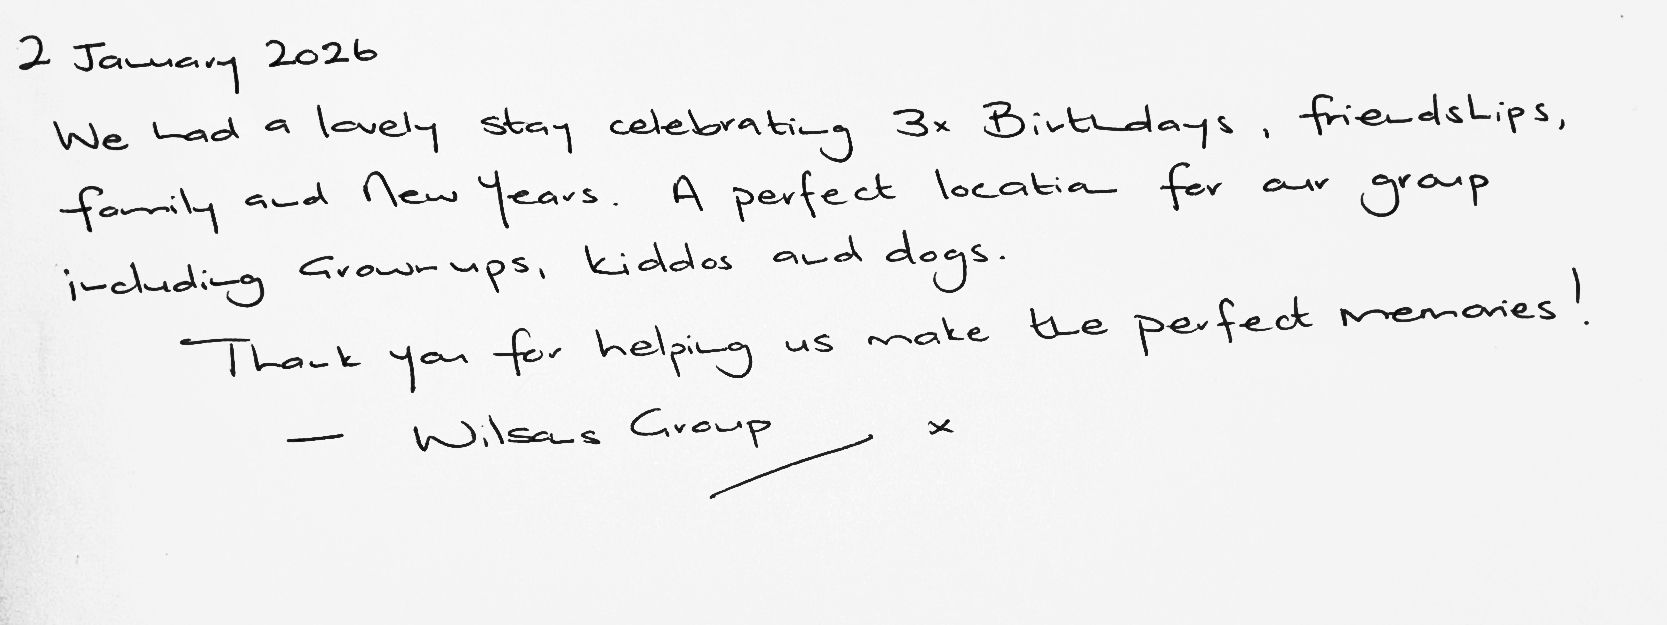 2 January 2026
We had a lovely stay celebrating 3x Birthdays, friendships,
family and New Years. A perfect location for our group
including Grownups, kiddos and dogs.
Thank you for helping us make the perfect memories!
— Wilsons Group x